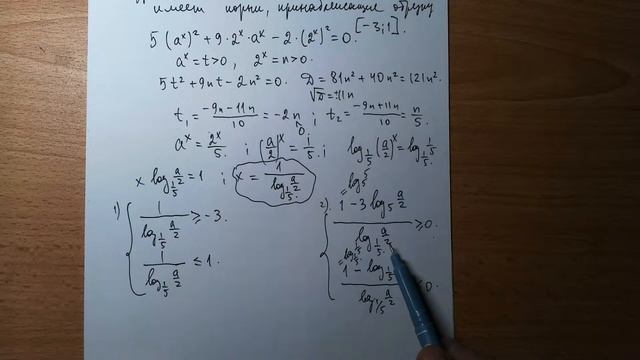 имеет корни, принадлежащие отрезку
[-3;1].
5(aˣ)² + 9·2ˣ·aˣ - 2·(2ˣ)² = 0.
aˣ = t > 0, 2ˣ = n > 0.
5t² + 9nt - 2n² = 0. D = 81n² + 40n² = 121n².
√D = ±11n
t₁ = (-9n - 11n)/10 = -2n ; t₂ = (-9n + 11n)/10 = n/5.
aˣ = 2ˣ/5. ; (a/2)ˣ = 1/5. ; log_{1/5}(a/2)ˣ = log_{1/5} 1/5
x log_{1/5} a/2 = 1 ; x = 1/(log_{1/5} a/2)
1) { 1/(log_{1/5} a/2) ≥ -3.
1/(log_{1/5} a/2) ≤ 1.
2) { (1 - 3 log₅ a/2)/(log_{1/5} a/2) ≥ 0.
1 - log_{1/5}
log_{1/5} a/2
0.